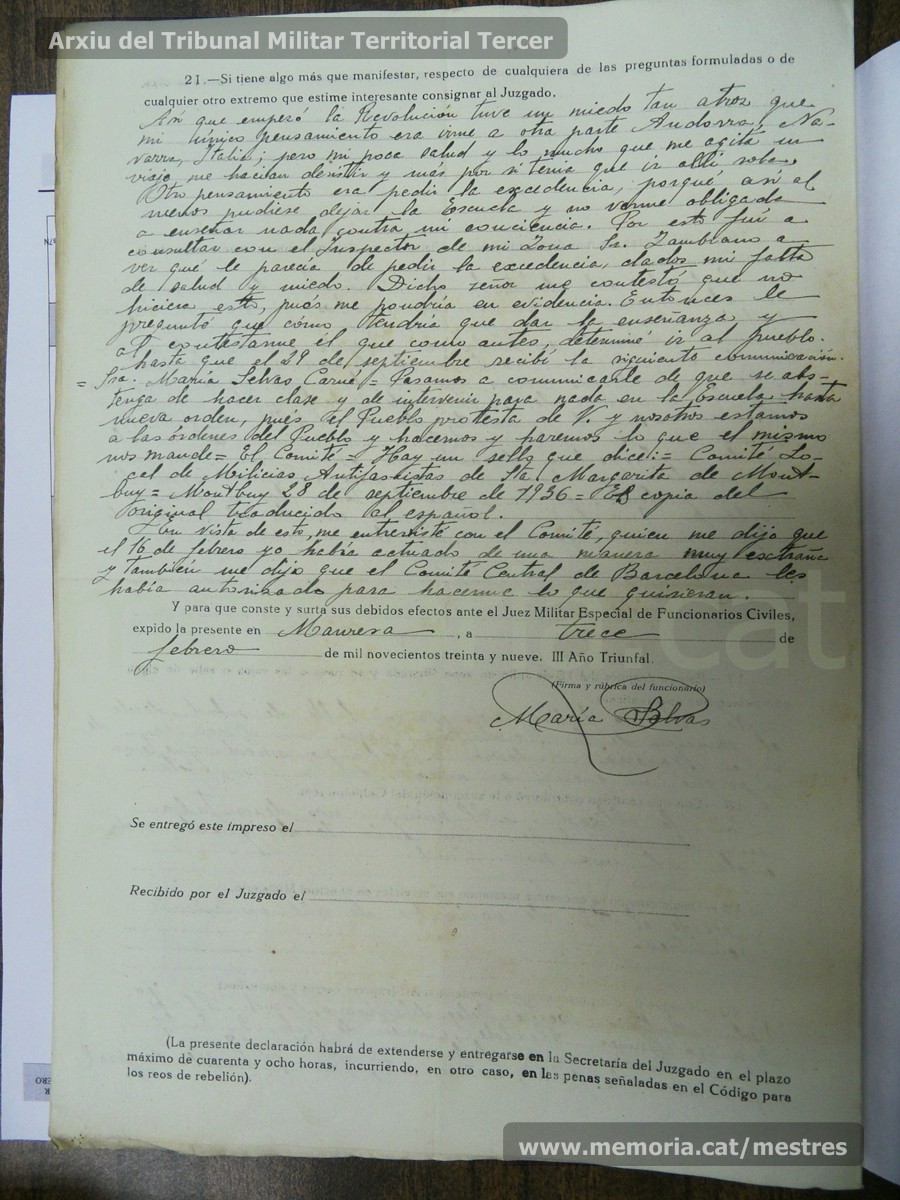 Arxiu del Tribunal Militar Territorial Tercer
21.—Si tiene algo más que manifestar, respecto de cualquiera de las preguntas formuladas o de
cualquier otro extremo que estime interesante consignar al Juzgado.
Así que empezó la Revolución tuve un miedo tan atroz que
mi único pensamiento era irme a otra parte Andorra, Na-
varra, Italia; pero mi poca salud y lo mucho que me agita un
viaje me hacían desistir y más por si tenía que ir allí sola.
Otro pensamiento era pedir la excedencia, porqué así al
menos pudiese dejar la Escuela y no verme obligada
a enseñar nada contra mi conciencia. Por esto fuí a
consultar con el Inspector de mi Zona Sr. Zambrano a
ver qué le parecía de pedir la excedencia, dados mi falta
de salud y miedo. Dicho señor me contestó que no
hiciera esto, pués me pondría en evidencia. Entonces le
pregunté que cómo tendría que dar la enseñanza y
al contestarme él que como antes, determiné ir al pueblo.
hasta que el 29 de septiembre recibí la siguiente comunicación.
= Sra. María Selvas Carné = Pasamos a comunicarle de que se abs-
tenga de hacer clase y de intervenir para nada en la Escuela hasta
nueva orden, pués el Pueblo protesta de V. y nosotros estamos
a las órdenes del Pueblo y hacemos y haremos lo que el mismo
nos mande = El Comité = Hay un sello que dice: = Comité Lo-
cal de Milicias Antifascistas de Sta. Margarita de Mont-
buy = Montbuy 28 de septiembre de 1936 = Es copia del
original traducido al español.
En vista de esto, me entrevisté con el Comité, quien me dijo que
el 16 de febrero yo había actuado de una manera muy extraña
y también me dijo que el Comité Central de Barcelona les
había autorizado para hacerme lo que quisieran.
Y para que conste y surta sus debidos efectos ante el Juez Militar Especial de Funcionarios Civiles,
expido la presente en Manresa, a trece de
febrero de mil novecientos treinta y nueve. III Año Triunfal.
(Firma y rúbrica del funcionario)
María Selvas
Se entregó este impreso el
Recibido por el Juzgado el
(La presente declaración habrá de extenderse y entregarse en la Secretaría del Juzgado en el plazo
máximo de cuarenta y ocho horas, incurriendo, en otro caso, en las penas señaladas en el Código para
los reos de rebelión).
cat
www.memoria.cat/mestres